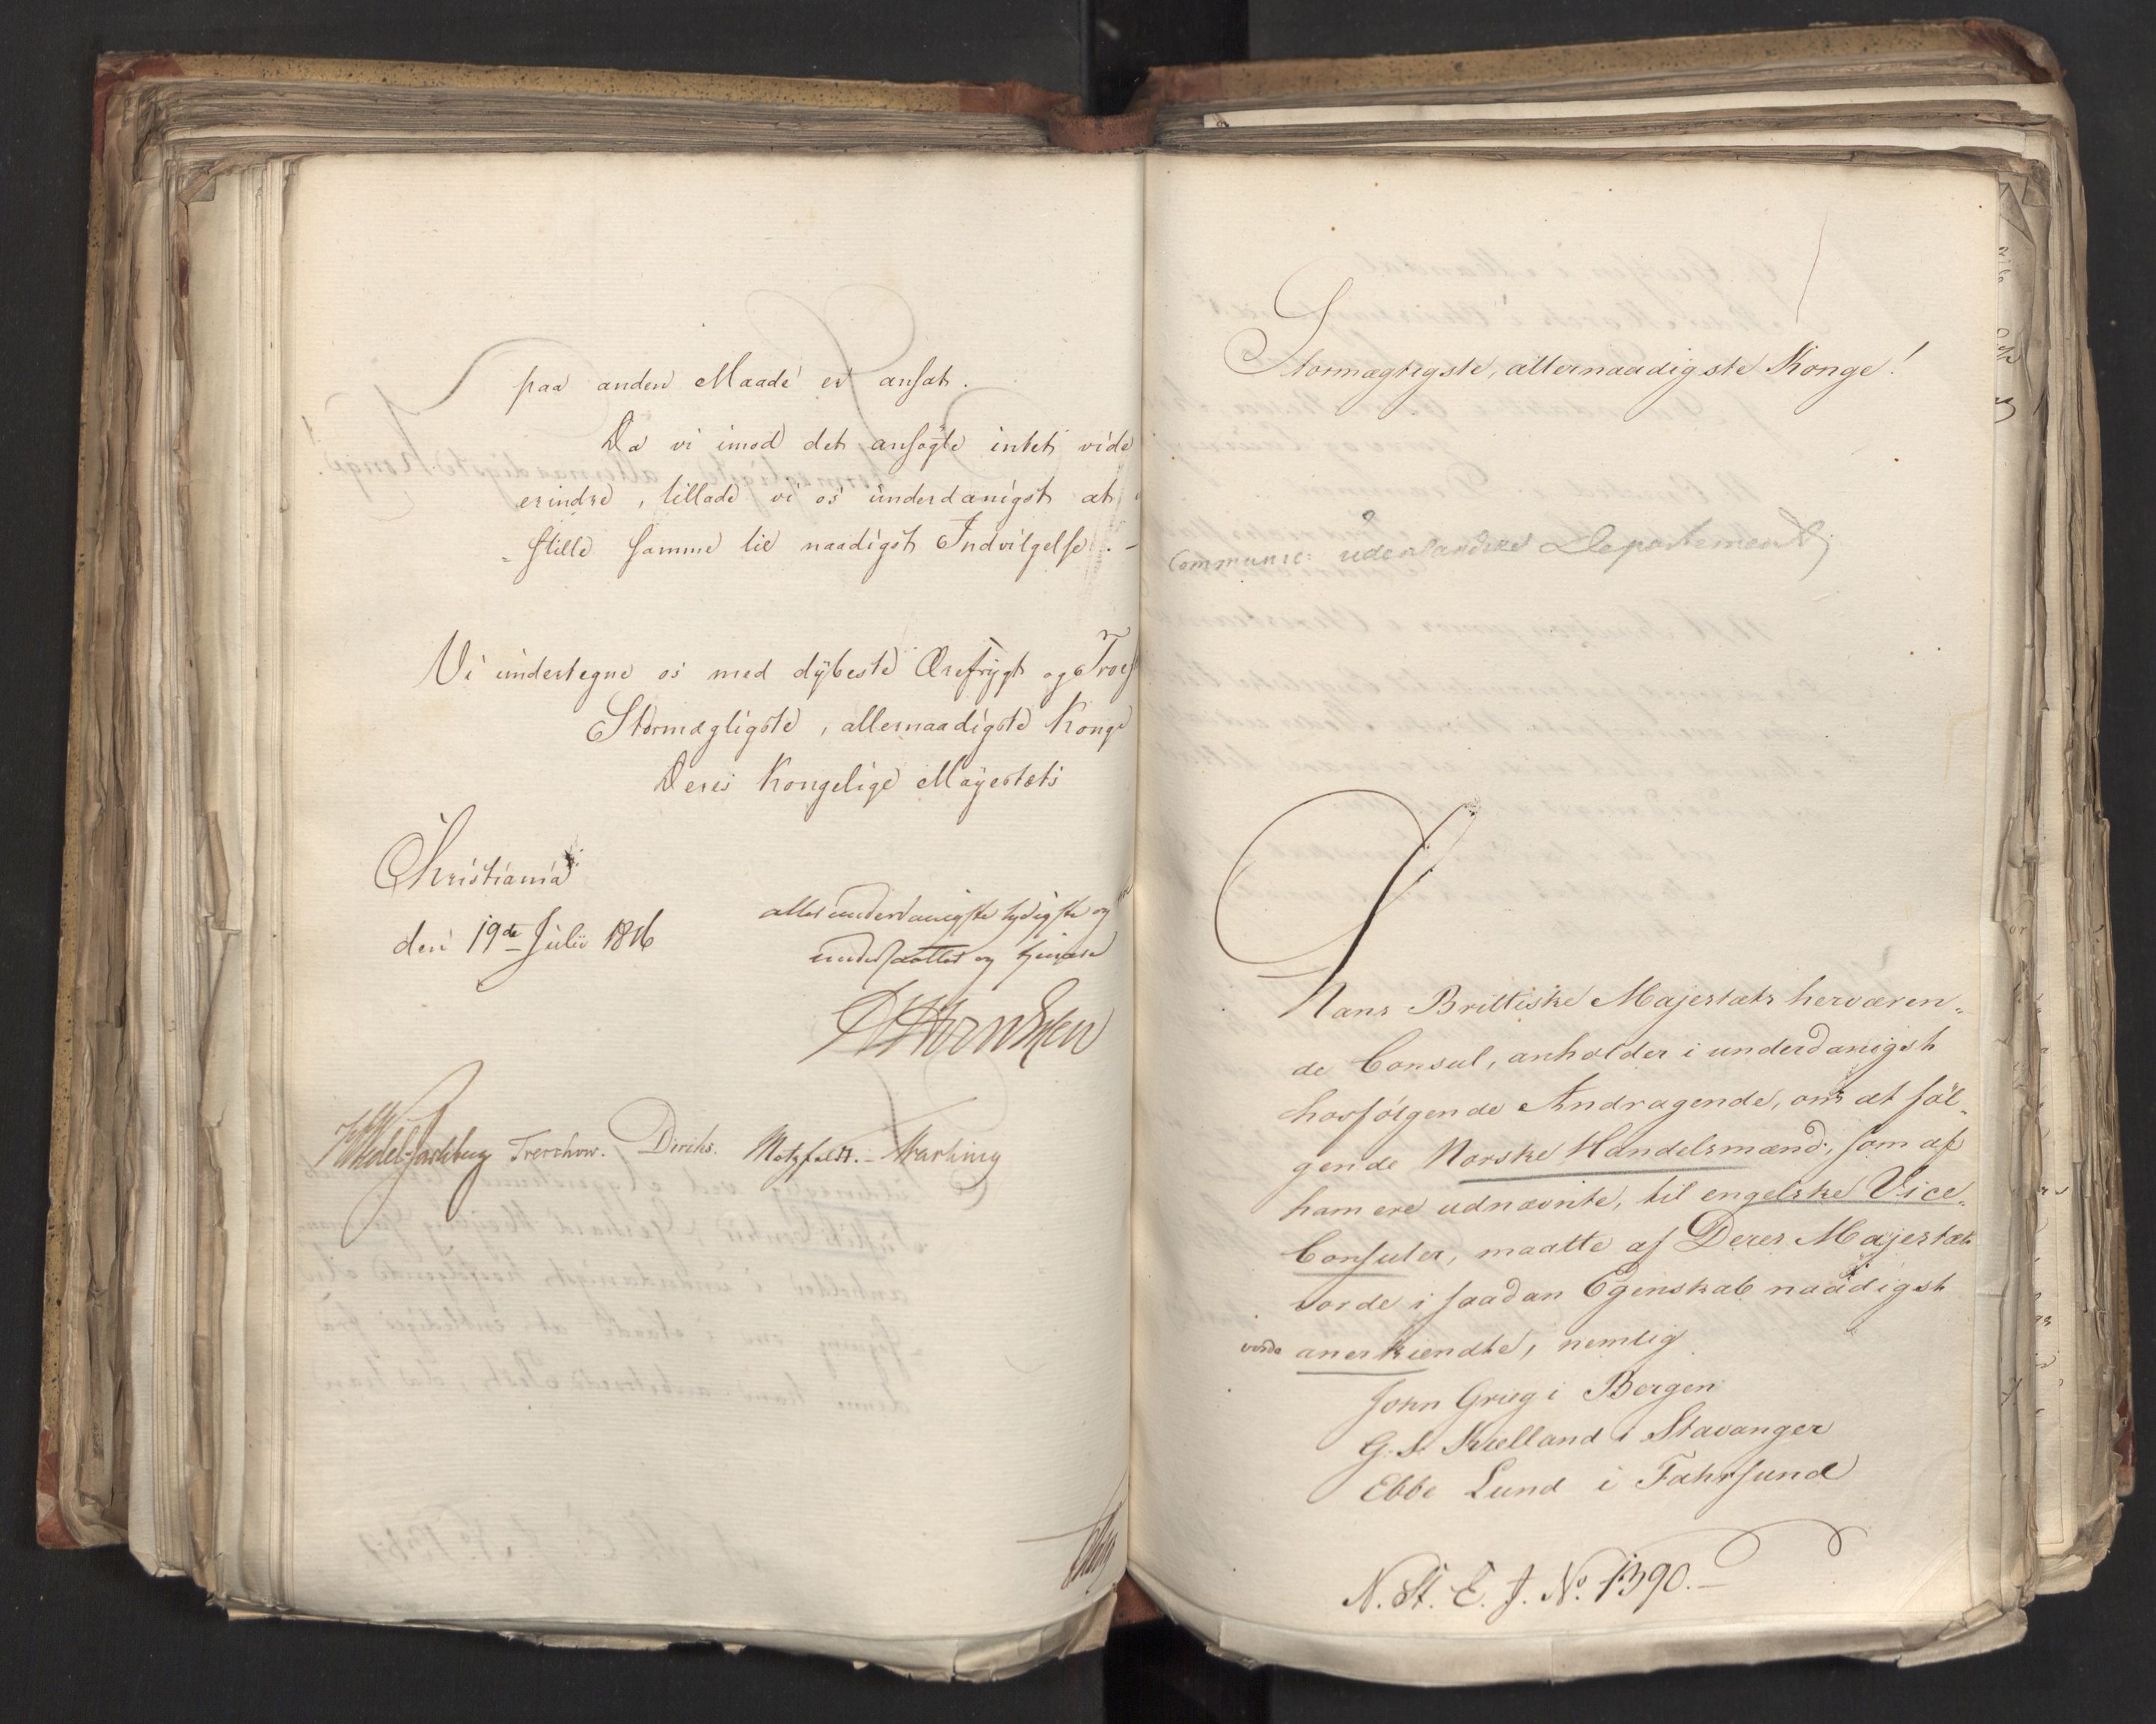 paa anden Maade er ansat.
Da vi imod det ansøgte intet vide
erindre, tillade vi os underdanigst at
stille samme til naadigst Indvilgelse. -
Vi undertegne os med dybeste Ærefrygt og
Stormægtigste, allernaadigste Konge
Deres Kongelige Mayestæts
Christiania
den 19de Julii 1816
allerunderdanigste lydigste og
undersaatter og tjenere
Wedel-Jarlsberg Treschow. Diriks. Motzfeldt. -
Stormægtigste, allernaadigste Konge!
Communic: udenlandske Departement
Hans Brittiske Majestæts herværen„
de Consul, anholder i underdanigst
hosfölgende Andragende, om at föl„
gende Norske Handelsmænd, som af
ham ere udnævnte, til engelske Vice„
Consuler, maatte af Deres Majestæt
vorde i saadan Egenskab naadigst
vorde anerkiendte, nemlig
John Grieg i Bergen
G. S. Kielland i Stavanger
Ebbe Lund i Fahrsund
N. St. E. J. No. 1390. -